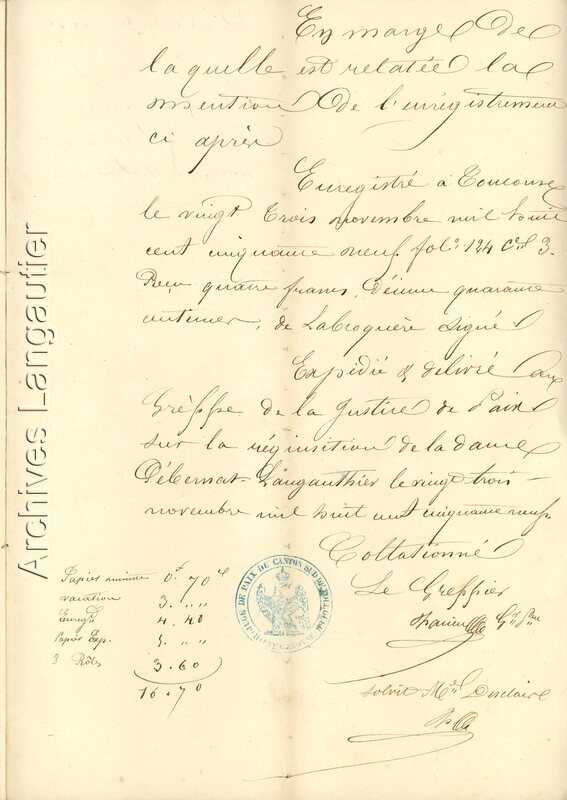 En marge de
laquelle est relatée la
mention De l'enrégistrement
ci après
Enregistré à Toulouse
le vingt trois novembre mil huit
cent cinquante neuf fol. 124 Cel 3.
Reçu quatre francs, Décime quarante
centimes, de Labroquère Signé
Expédié & délivré au
Gréffe de la Justice de Paix
sur la réquisition de la dame
Débernat-Langauthier le vingt trois
novembre mil huit cent cinquante neuf
Collationné
Le Greffier
Solvit Mel Desclaire
Papier minute 0f. 70c
vacation 3. " "
Enregt 4. 40
Papier Exp. 5. " "
3 Rôles 3. 60
16. 70
JUSTICE DE PAIX DU CANTON SUD DE TOULOUSE
HAUTE-GARONNE
Archives Langautier